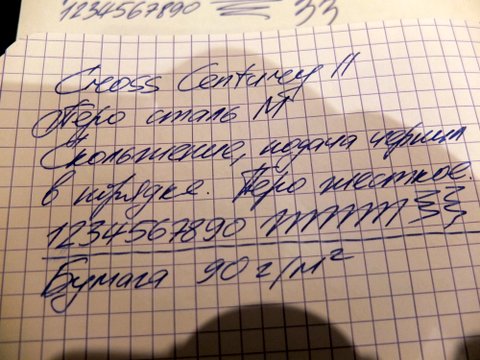 1234567890 33
Cross Century II
Перо сталь М
Скольжение, подача чернил
в порядке. Перо жесткое.
1234567890
Бумага 90 г/м²